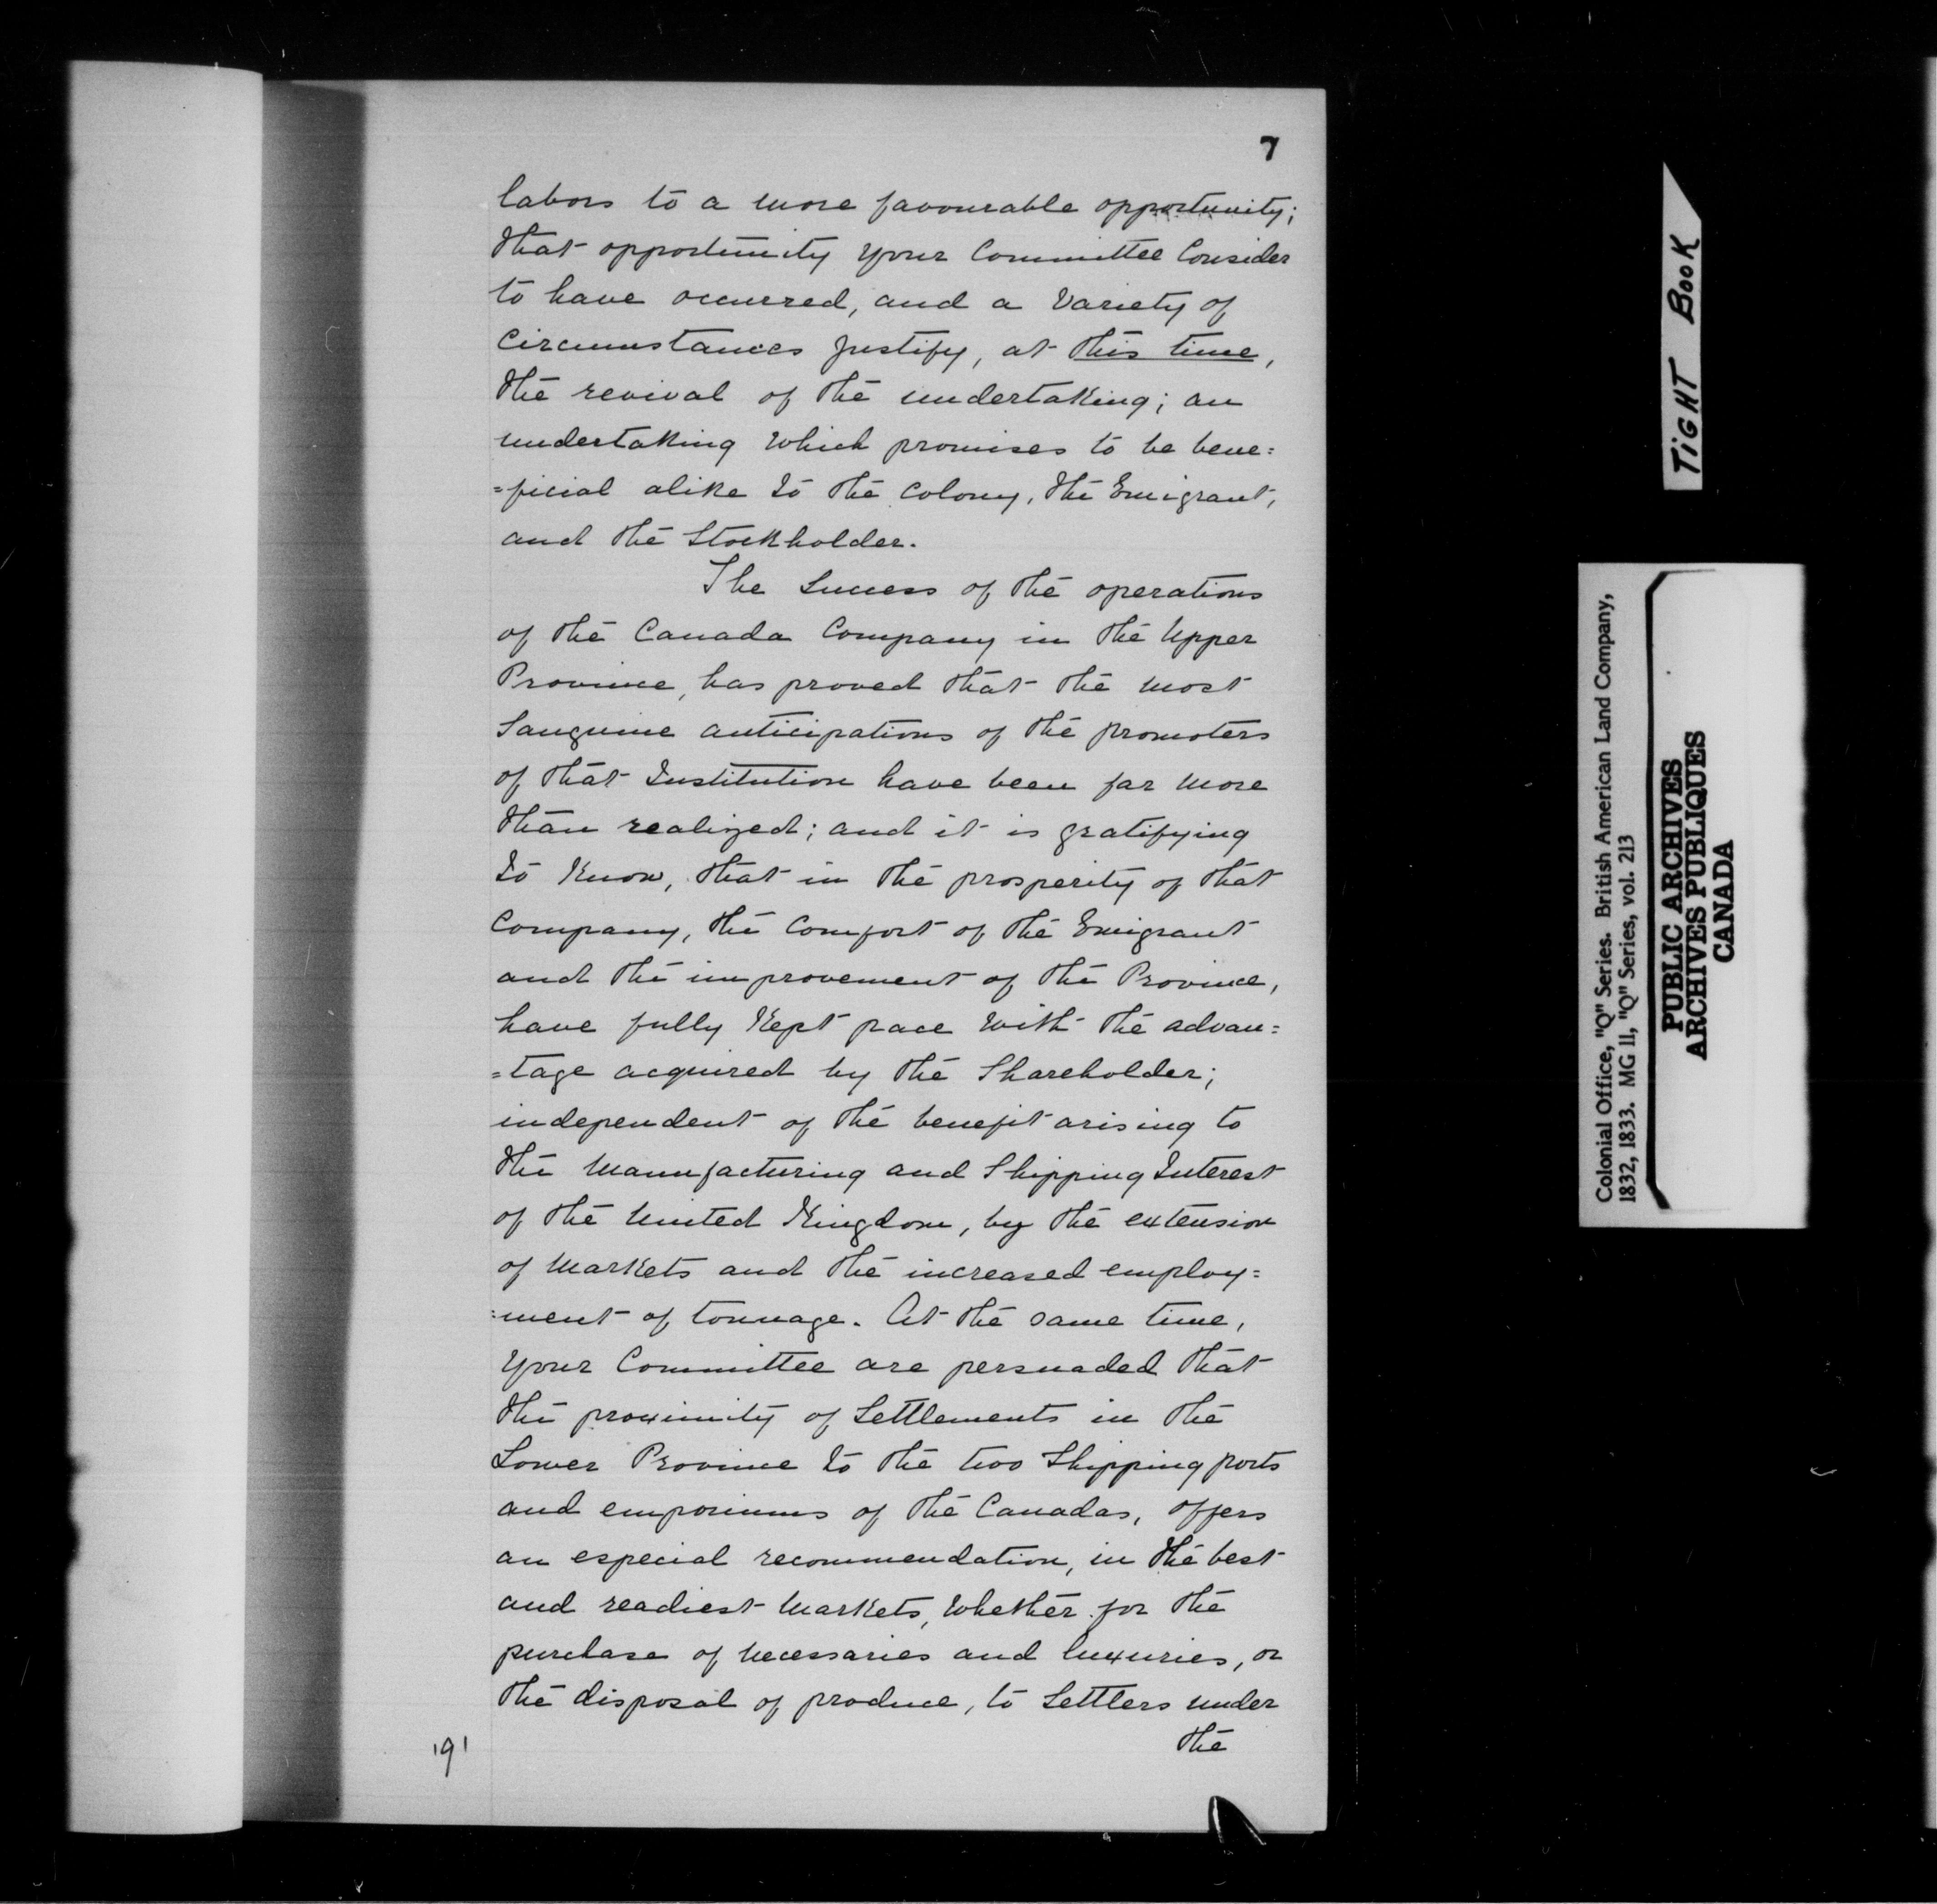 7
labors to a more favourable opportunity;
that opportunity your Committee Consider
to have occurred, and a Variety of
Circumstances justify, at this time,
the revival of the undertaking; an
undertaking which promises to be bene=
=ficial alike to the Colony, the Emigrant,
and the Stockholder.
The Success of the operations
of the Canada Company in the Upper
Province, has proved that the most
Sanguine anticipations of the promoters
of that Institution have been far more
than realized; and it is gratifying
to Know, that in the prosperity of that
Company, the Comfort of the Emigrant
and the improvement of the Province,
have fully Kept pace with the advan=
=tage acquired by the Shareholder;
independent of the benefit arising to
the Manufacturing and Shipping Interest
of the United Kingdom, by the extension
of Markets and the increased employ=
=ment of tonnage. At the same time,
your Committee are persuaded that
the proximity of Settlements in the
Lower Province to the two Shipping ports
and emporiums of the Canadas, offers
an especial recommendation, in the best
and readiest Markets, whether for the
purchase of necessaries and luxuries, or
the disposal of produce, to Settlers under
the
191
TIGHT BOOK
Colonial Office, "Q" Series. British American Land Company,
1832, 1833. MG 11, "Q" Series, vol. 213
PUBLIC ARCHIVES
ARCHIVES PUBLIQUES
CANADA